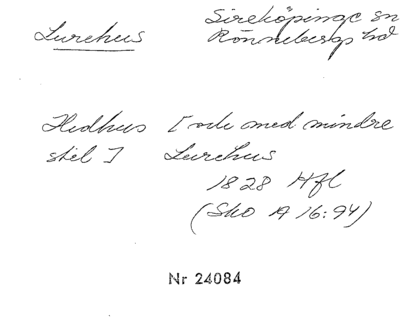 Lurehus
Sireköpinge sn
Rönnebergs hd
Hedhus [och med mindre
stil] Lurehus
1828 Hfl
(Sko A 16:94)
Nr 24084